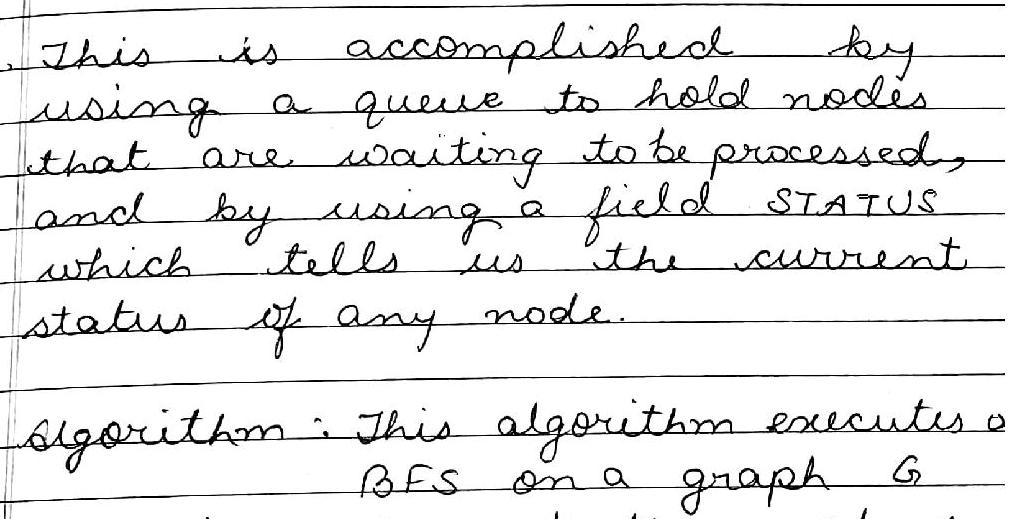 This is accomplished by
using a queue to hold nodes
that are waiting to be processed,
and by using a field STATUS
which tells us the current
status of any node.
Algorithm : This algorithm executes a
BFS on a graph G